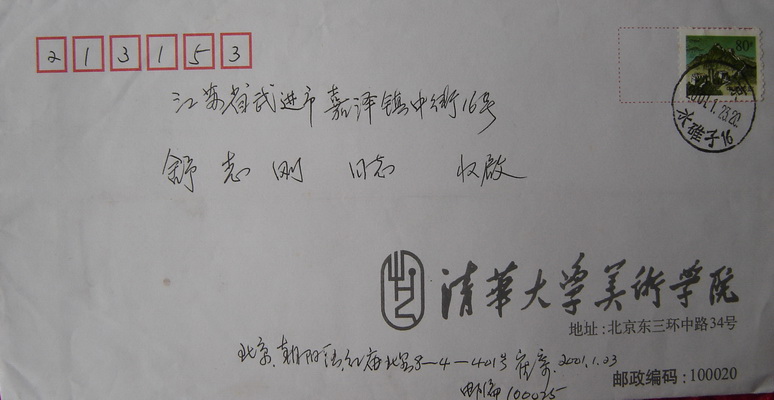 213153
80
江苏省武进市嘉泽镇中街16号
2001.1.23.20
水碓子16
舒志刚 同志 收启
清華大学美術学院
地址:北京东三环中路34号
北京.朝阳 红庙北里8-4-401号 2001.1.23
邮政编码:100020
邮编100025